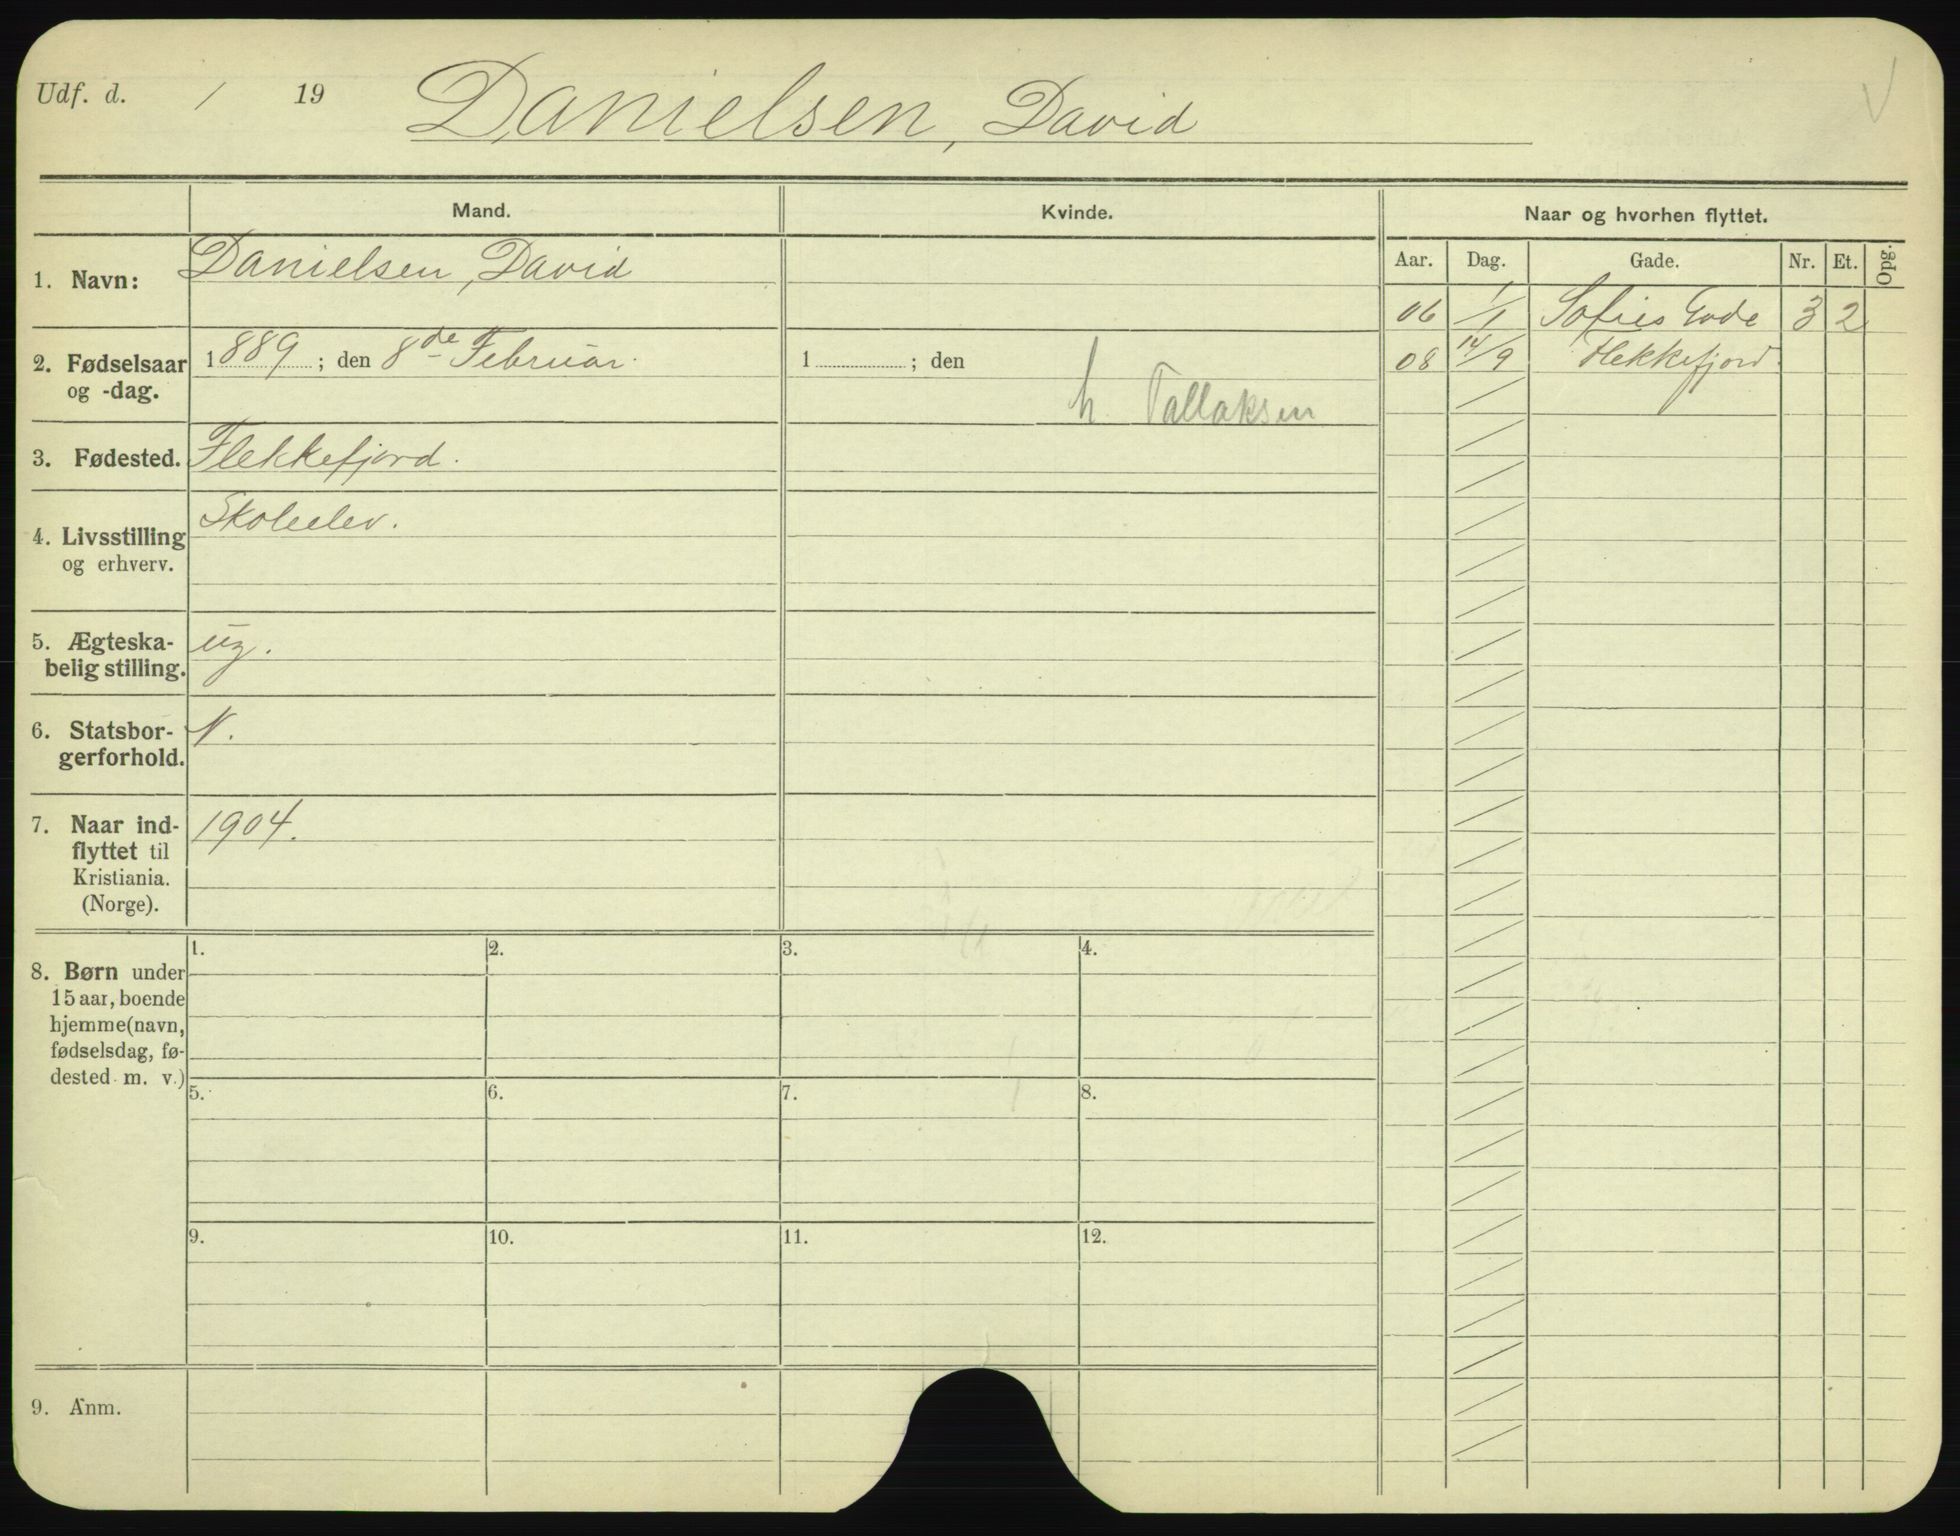 Udf. d. / 19 Danielsen, David
Mand. Kvinde. Naar og hvorhen flyttet.
Aar. Dag. Gade. Nr. Et. Opg.
1. Navn: Danielsen, David
06 1/1 Sofies Gade 3 2
2. Fødselsaar og -dag. 1889; den 8de Februar. 1 ; den
h Tallaksen
08 14/9 Flekkefjord.
3. Fødested. Flekkefjord.
4. Livsstilling og erhverv. Skoleelev.
5. Ægteska-
belig stilling. ug.
6. Statsbor-
gerforhold. N.
7. Naar ind-
flyttet til
Kristiania.
(Norge). 1904.
8. Børn under
15 aar, boende
hjemme (navn,
fødselsdag, fø-
dested m. v.)
1. 2. 3. 4.
5. 6. 7. 8.
9. 10. 11. 12.
9. Anm.